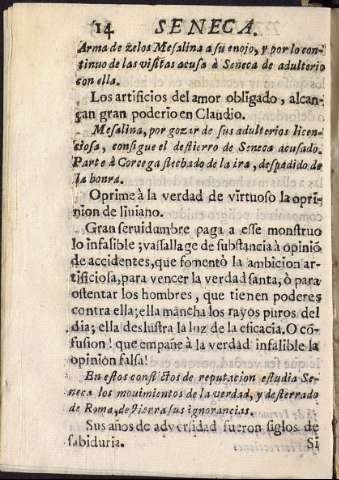 14 SENECA.
Arma de zelos Mesalina a su enojo, y por lo con-
tinuo de las visitas acusa à Seneca de adulterio
con ella.
Los artificios del amor obligado, alcan-
çan gran poderio en Claudio.
Mesalina, por gozar de sus adulterios licen-
ciosa, consigue el destierro de Seneca acusado.
Parte à Corcega flechado de la ira, despedido de
la honra.
Oprime à la verdad de virtuoso la opi-
nion de liuiano.
Gran seruidumbre paga a esse monstruo
lo infalible; vassallage de substancia à opiniõ
de accidentes, que fomentò la ambicion ar-
tificiosa, para vencer la verdad santa, ò para
ostentar los hombres, que tienen poderes
contra ella; ella mancha los rayos puros del
dia; ella deslustra la luz de la eficacia. O cõ-
fusion! que empañe à la verdad infalible la
opinion falsa!
En estos conflictos de reputacion estudia Se-
neca los movimientos de la verdad, y desterrado
de Roma, destierra sus ignorancias.
Sus años de adversidad fueron siglos de
sabiduria.
Si